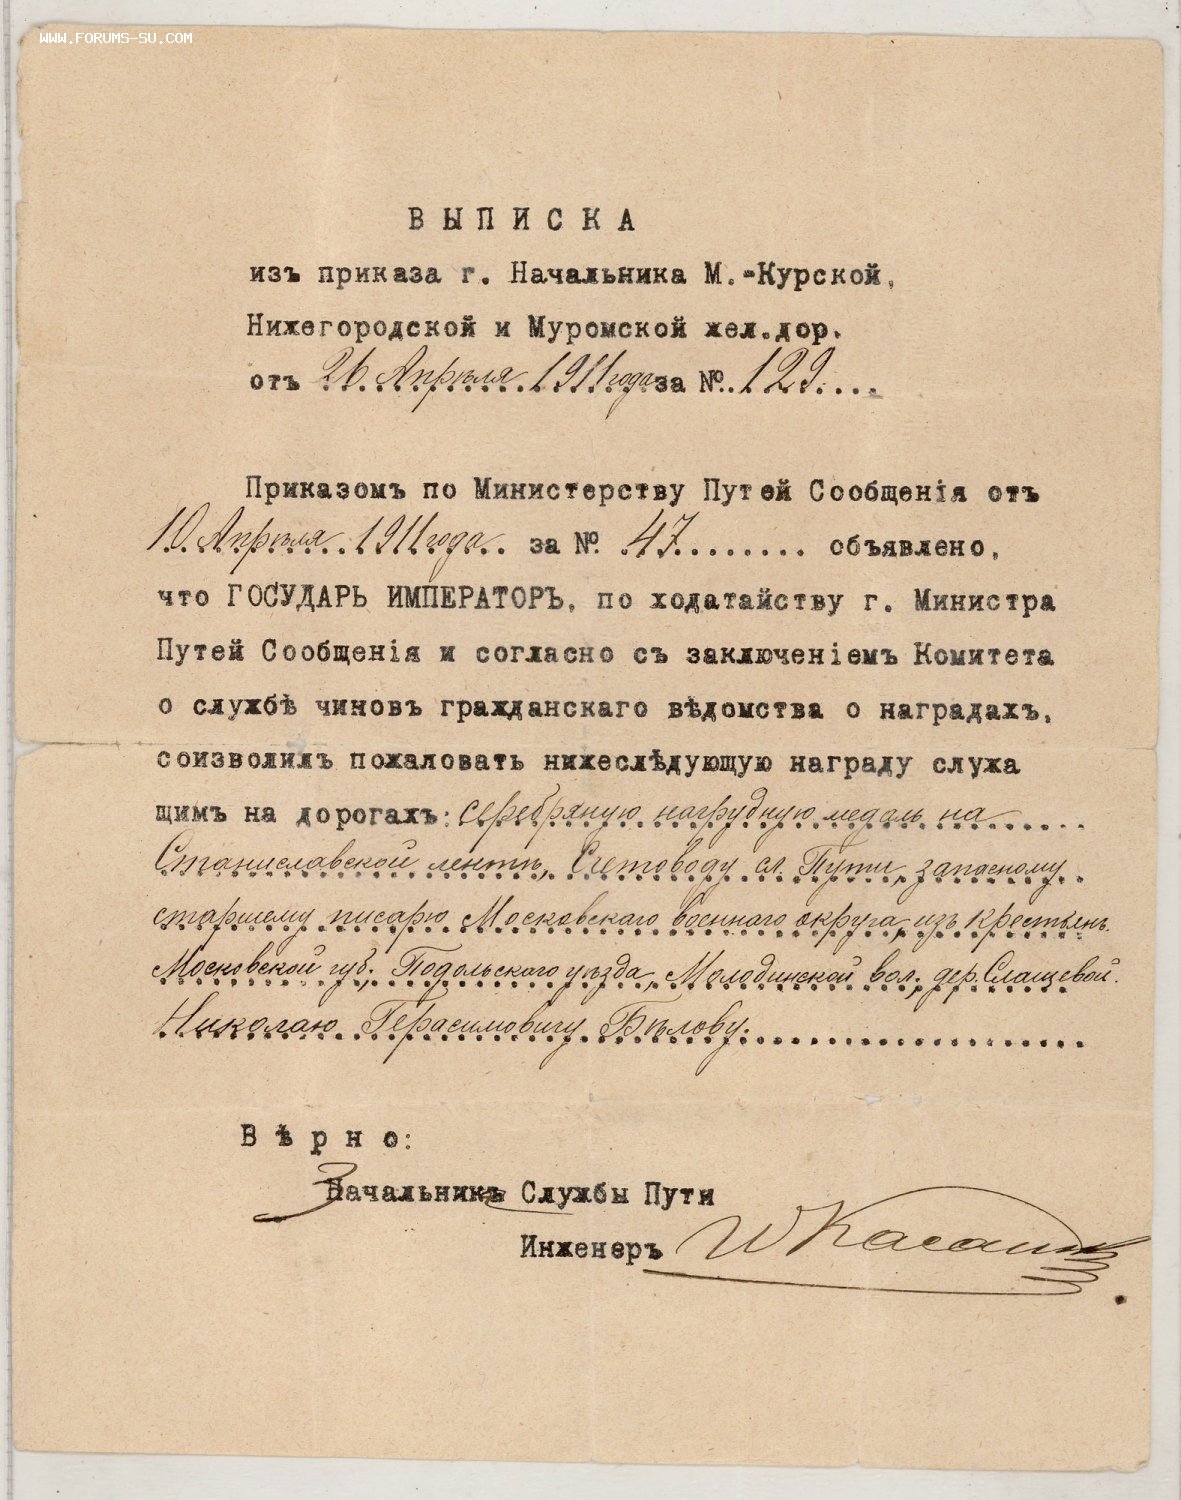 WWW.FORUMS-SU.COM
ВЫПИСКА
изъ приказа г. Начальника М.-Курской,
Нижегородской и Муромской жел.дор.
отъ 26 Апрѣля 1911 года за № 129
Приказомъ по Министерству Путей Сообщенія отъ
10 Апрѣля 1911 года за № 47 объявлено,
что ГОСУДАРЬ ИМПЕРАТОРЪ, по ходатайству г. Министра
Путей Сообщенія и согласно съ заключеніемъ Комитета
о службѣ чиновъ гражданскаго вѣдомства о наградахъ,
соизволилъ пожаловать нижеслѣдующую награду служа
щимъ на дорогахъ: серебряную нагрудную медаль на
Станиславской лентѣ, Счетоводу сл. Пути, запасному
старшему писарю Московскаго военнаго округа, изъ крестьянъ
Московской губ. Подольскаго уѣзда, Молодинской вол., дер. Слащевой.
Николаю Герасимовичу Бѣлову.
Вѣрно:
Начальникъ Службы Пути
Инженеръ